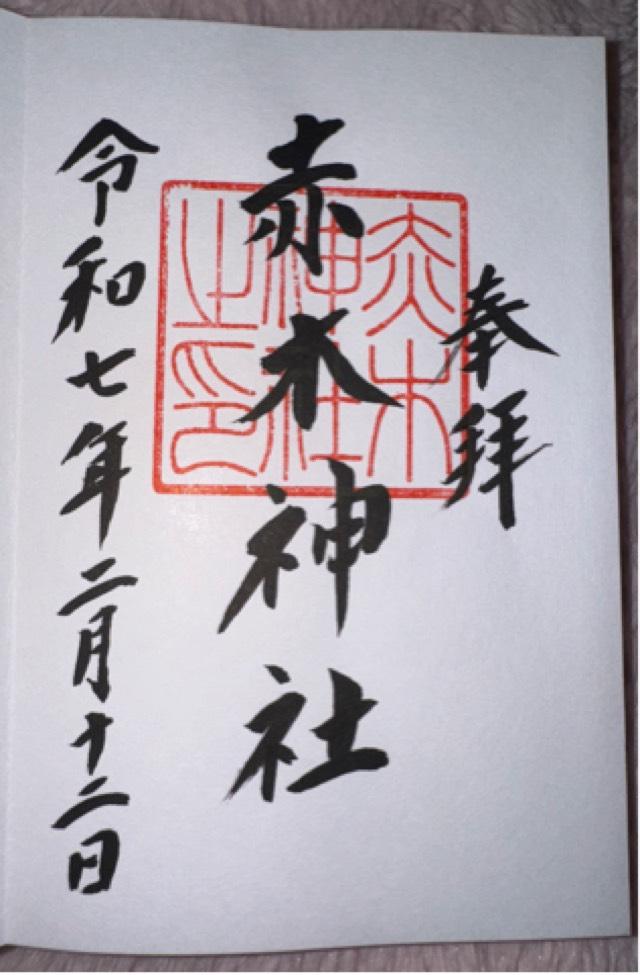 奉拝
赤木神社
赤木
神社
之印
令和七年二月十二日